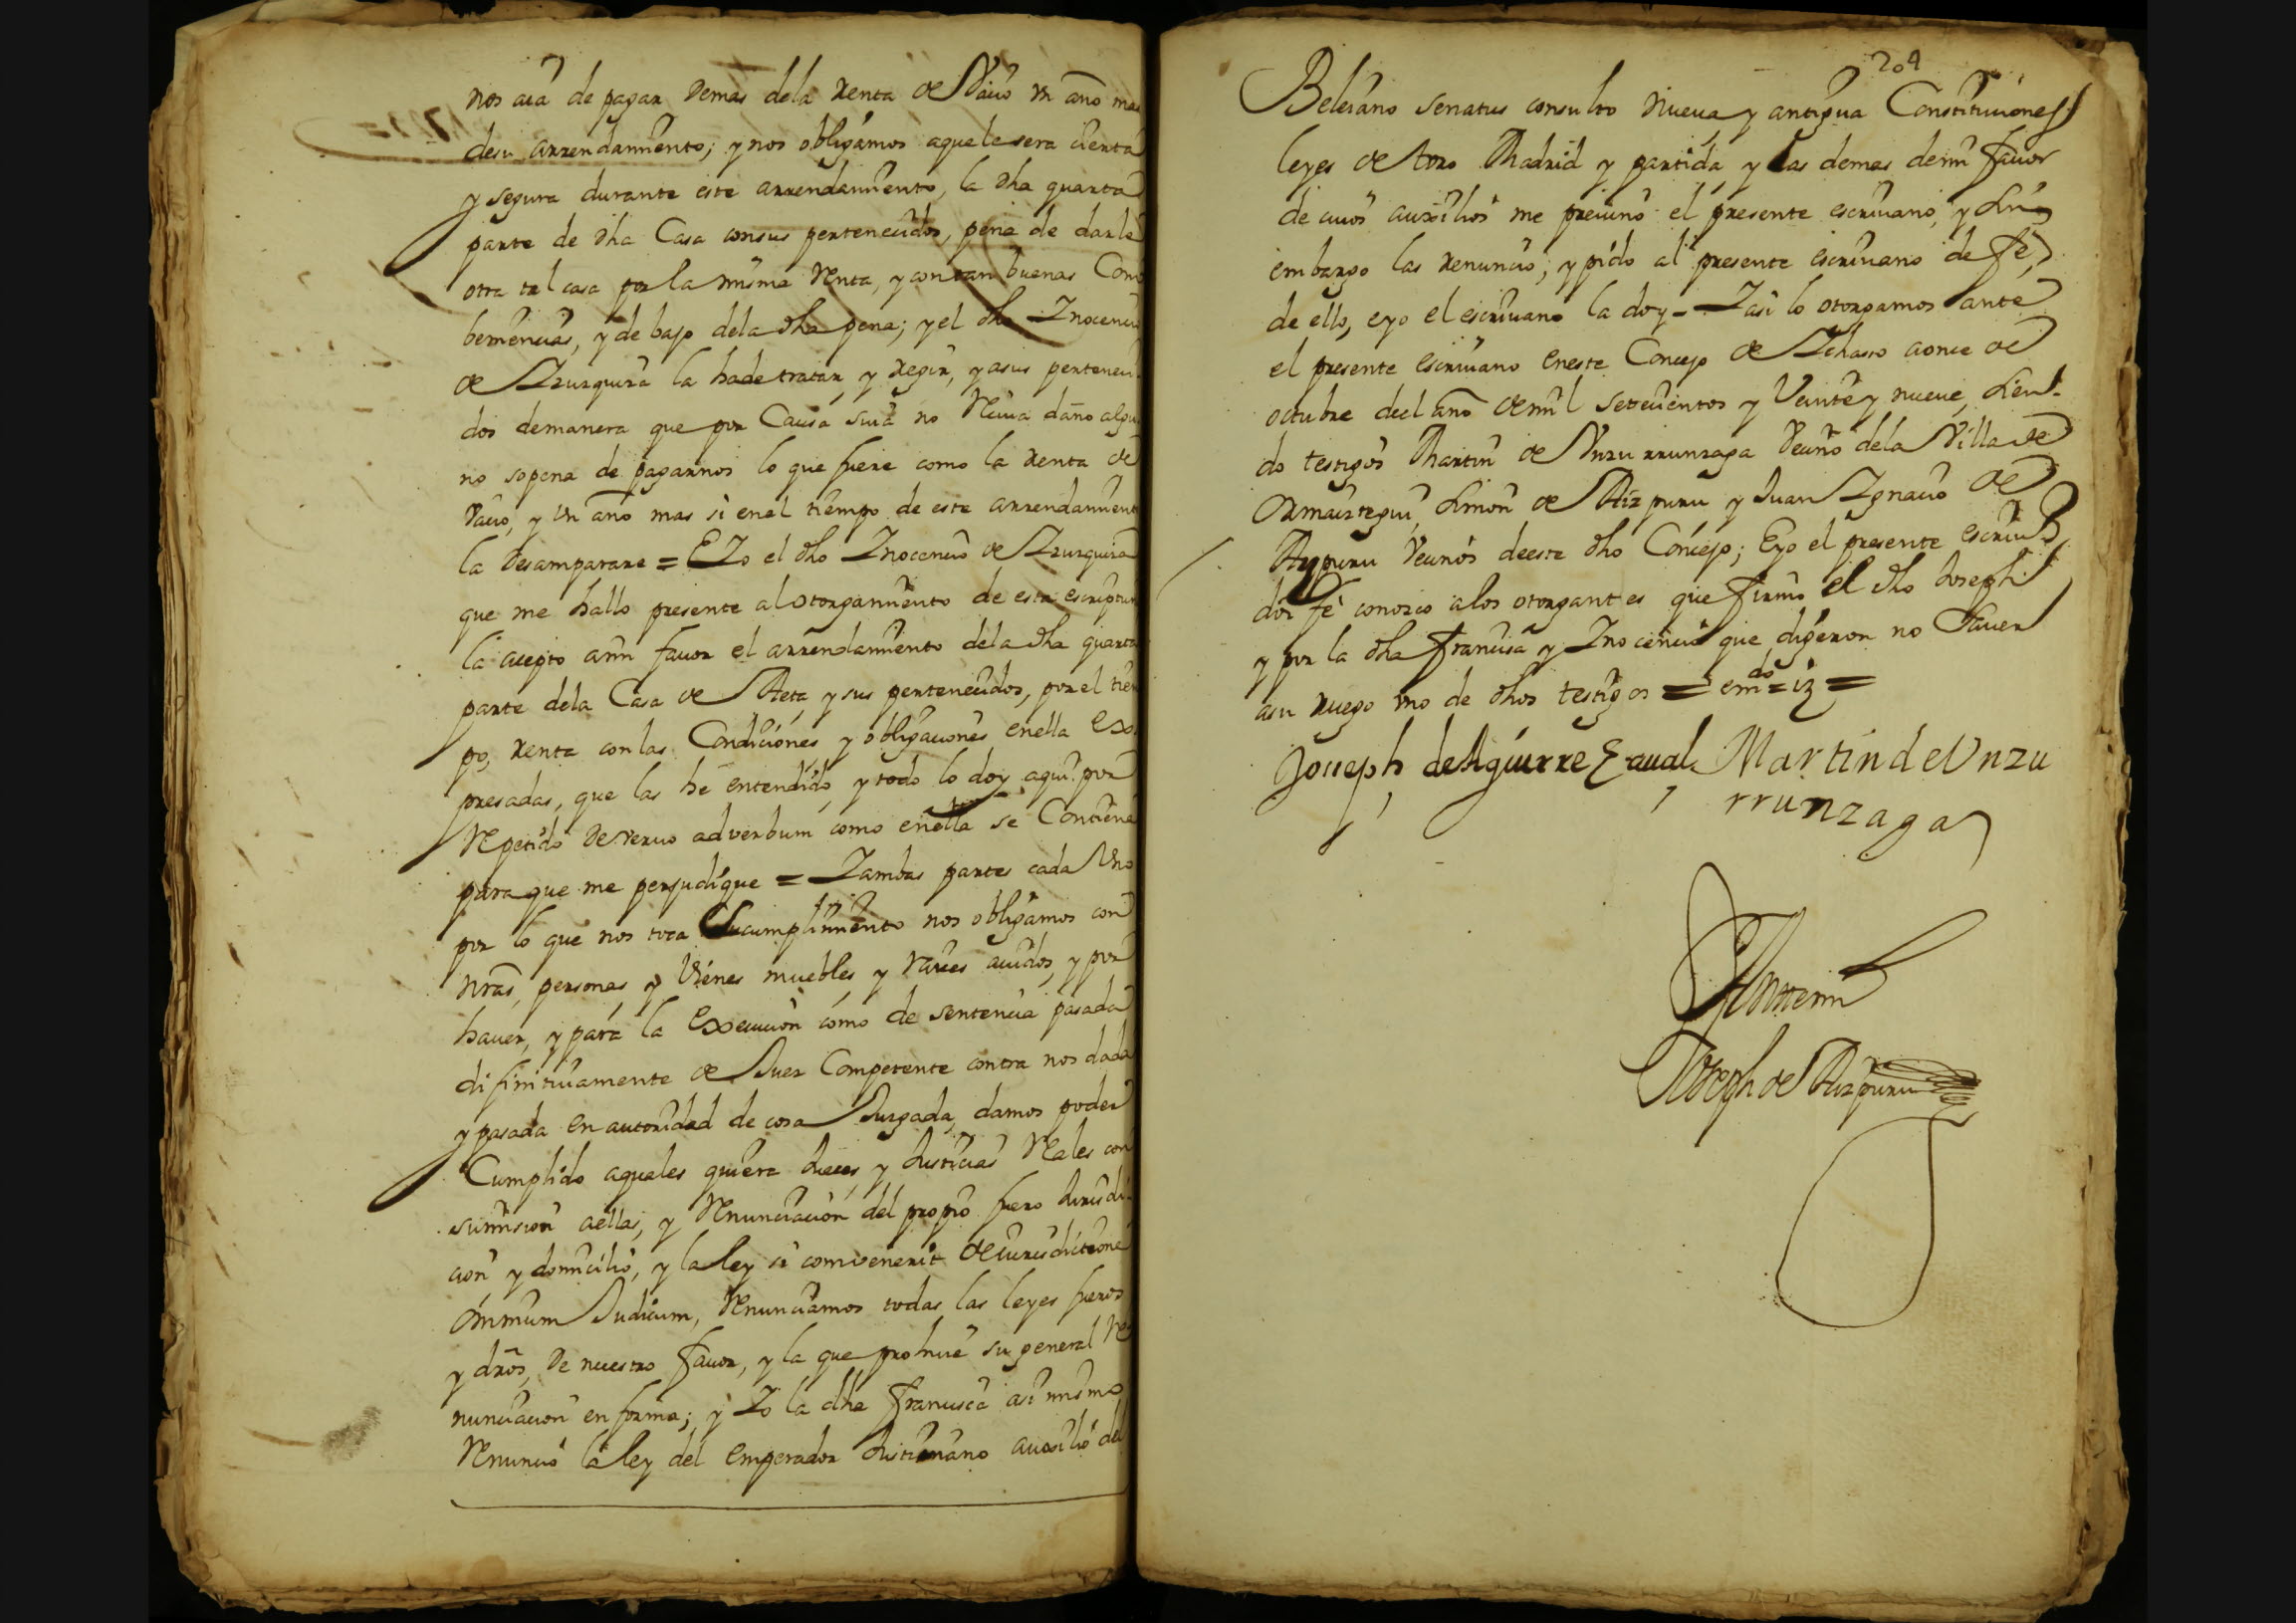 nos aia de pagar demas dela renta de Vacio un año mas
desu arrendamiento; y nos obligamos aquele sera cierta
y segura durante este arrendamiento, la dha quarta
parte de dha Casa consus pertenecidos, pena de darle
otra tal casa por la misma renta, y con tan buenas Com
beniencias, y de bajo dela dha pena; y el dho Inocencio
de Izurquiza la hade tratar y regir, y asus perteneci
dos demanera que por Causa suia no reciva daño algu
no sopena de pagarnos lo que fuere como la renta de
vacio, y un año mas si enel tiempo de este arrendamiento
la desamparare = E Io el dho Inocencio de Izurquiza
que me hallo presente al otorgamiento de esta escriptura
la acepto ami favor el arrendamiento dela dha quarta
parte dela Casa de Aeta y sus pertenecidos, por el tiem
po, renta con las Condiciones y obligaciones enella ex
presadas, que las he entendido y todo lo doy aqui por
repetido de vervo adverbum como enella se Contiene
para que me perjudique = I ambas partes cada uno
por lo que nos toca su cumplimiento nos obligamos con
nrãs personas y vienes muebles y raices avidos y por
haver, y para la execucion como de sentencia pasada
difinitivamente de Juez Competente contra nos dada
y pasada en autoridad de cosa Juzgada, damos poder
Cumplido aquales quiera Jueces y Justicias reales con
sumision aellas, y renunciacion del propio fuero Jurisdi
cion y domicilio, y la ley si convenerit de iurisdictione
omnium Judicum, renunciamos todas las leyes fueros
y drõs de nuestro favor, y la que prohive su general re
nunciacion en forma; y Io la dha Francisca asi mismo
renuncio la ley del emperador Justiniano auxilio del
204
Beleiano senatus consulto nueva y antigua Constituciones
leyes de toro Madrid y partida y las demas demi favor
de cuios auxilios me previno el presente escrivano, y sin
embargo las renuncio; y pido al presente escrivano de fe
de ello, e yo el escrivano la doy = I asi lo otorgamos ante
el presente escrivano eneste Concejo de Ichaso a once de
octubre del año de mil setecientos y Veinte y nueve, sien
do testigos Martin de Unzurrunzaga vecino dela Villa de
Ormaiztegui, Simon de Aizpuru y Juan Ignacio de
Aypuru vecinos deeste dho Concejo; E yo el presente escrivo
doi fe conozco alos otorgantes que firmo el dho Joseph
y por la dha Francisca y Inocencio que digeron no saver
asu ruego uno de dhos testigos = emdo = iz =
Joseph de Aguirre Zaval Martin de Unzu
rrunzaga
Ante mi
Joseph de Aizpuru